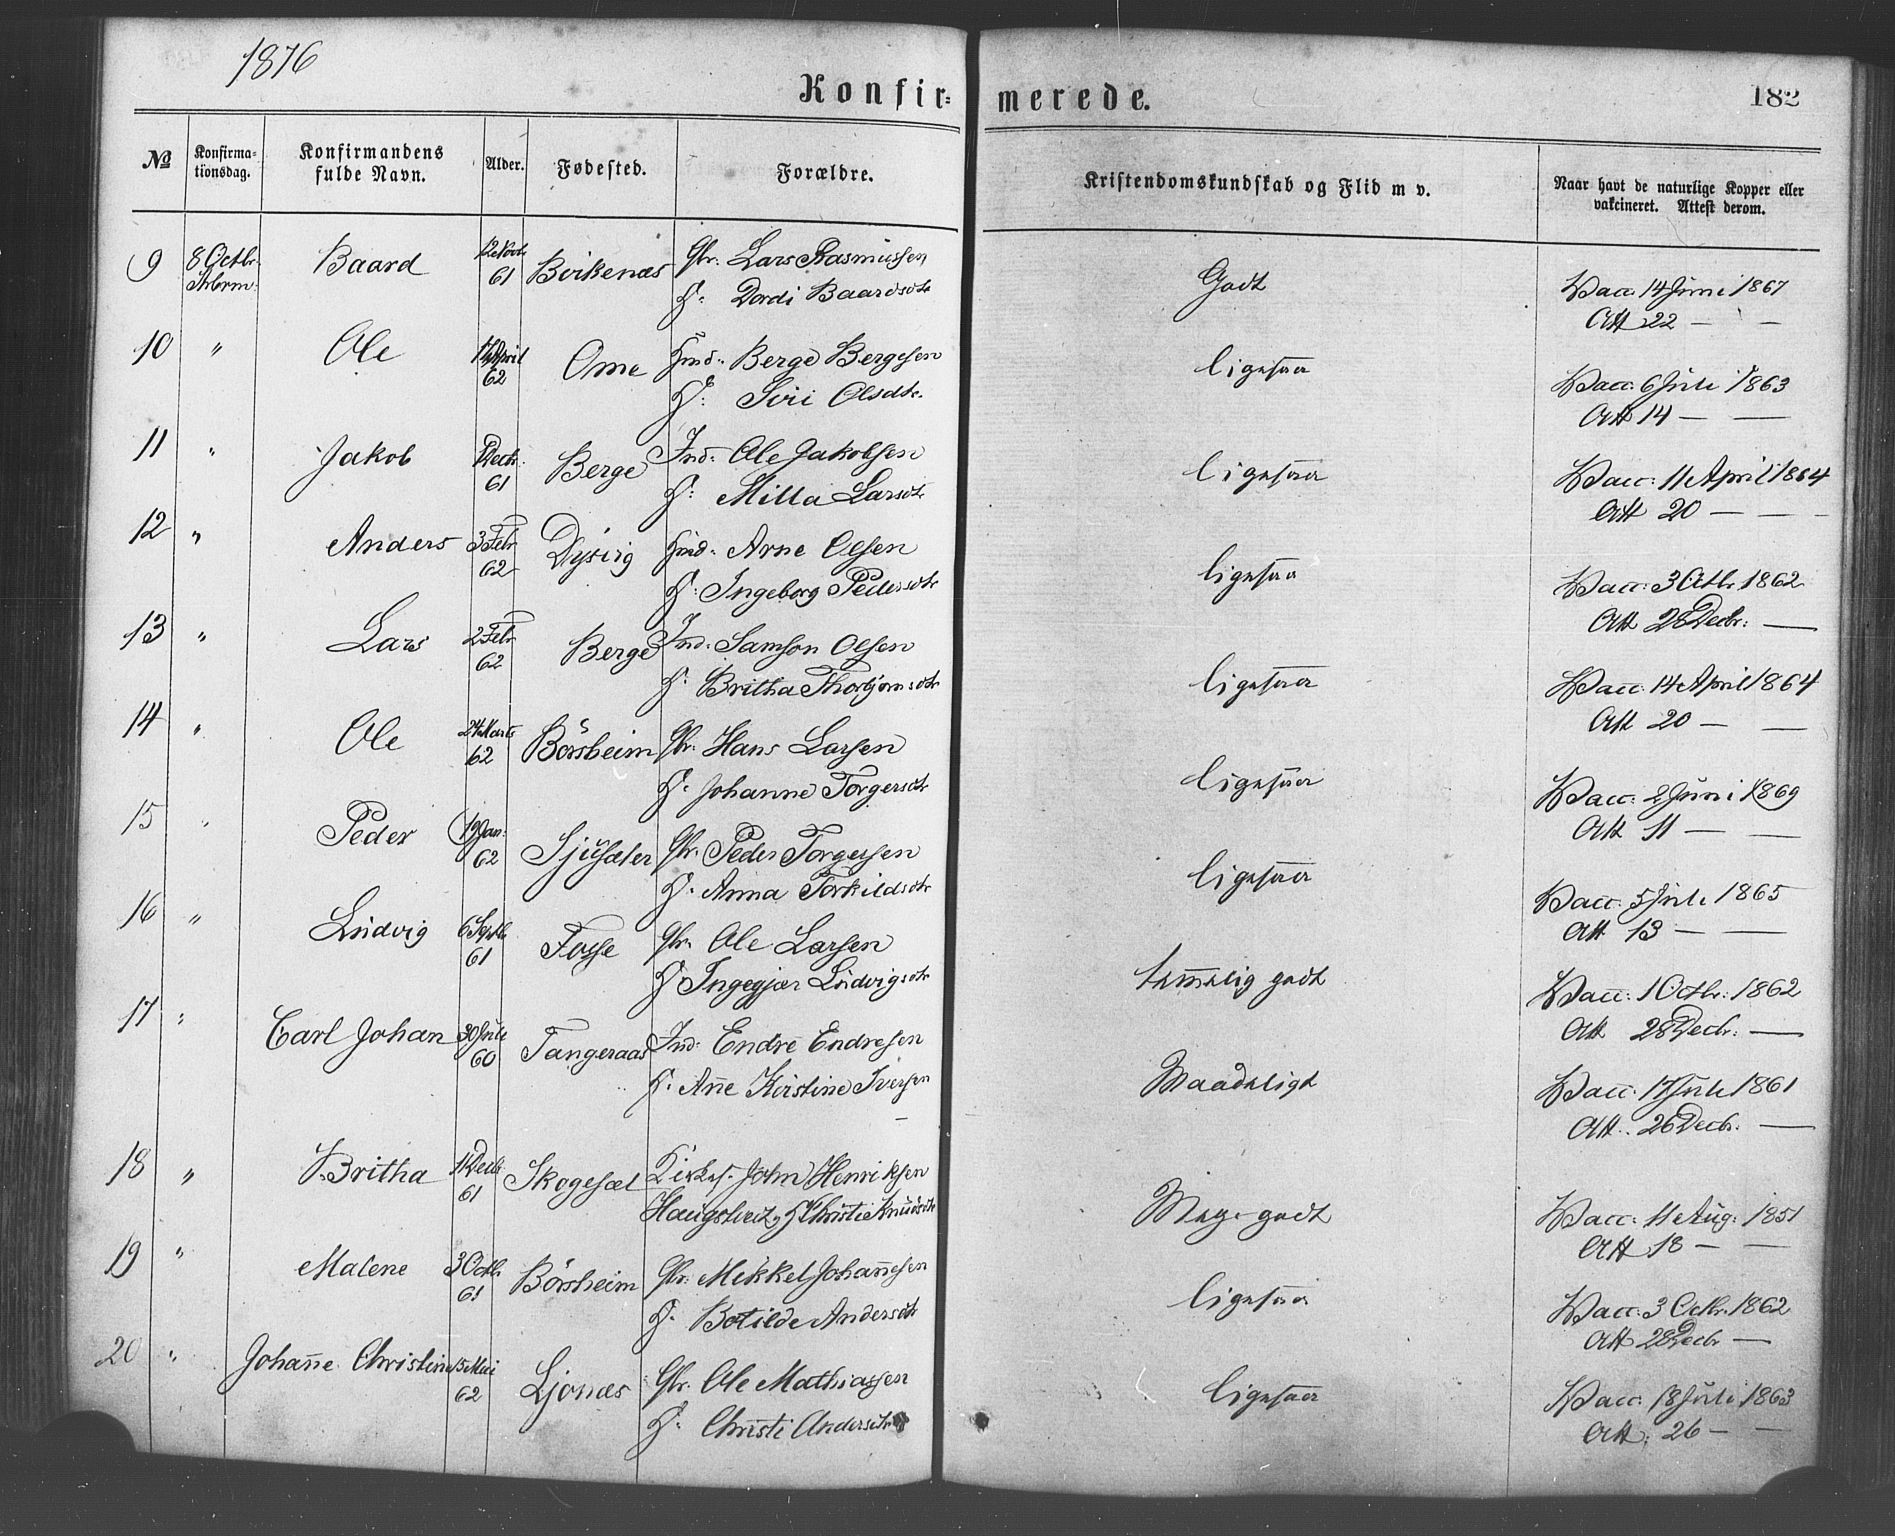 1876
Konfir= merede.
182
No Konfirma=tionsdag. Konfirmandens fulde Navn. Alder. Fødested. Forældre. Kristendomskundskab og Flid m v. Naar havt de naturlige Kopper eller vakcineret. Attest derom.
9 8 Octbr. Baard 12 Novbr. Birkenæs Gbr. Lars Rasmussen Godt Vacc. 14 Juni 1867
61 H: Dordi Baardsdtr Att 22 — —
10 " Ole April Ome Hmd. Berge Bergesen ligesaa Vacc. 6 Juli 1863
62 H: Siri Olsdtr. Att 14 — —
11 " Jakob Decbr. Berge Ind. Ole Jakobsen ligesaa Vacc: 11 April 1864
61 H: Milla Larsdtr Att 20 — —
12 " Anders 3 Febr Dysvig Hmd. Arne Olsen ligesaa Vacc: 3 Octbr. 1862
62 H: Ingeborg Pedersdtr Att 28 Decbr: —
13 " Lars 2 Febr Berge Ind. Samson Olsen ligesaa Vacc. 14 April 1864
62 H. Britha Thorbjørnsdtr Att 20 — —
14 " Ole 24 Marts Börsheim Gbr. Hans Larsen ligesaa Vacc: 2 Juni 1869
62 H. Johanne Torgersdtr Att 11 — —
15 " Peder 19 Jan: Sjusæter Gbr. Peder Torgersen ligesaa Vacc. 5 Juli 1865
62 H. Anna Torkildsdtr Att 13 — —
16 " Ludvig 6 Septbr Fosse Gbr. Ole Larsen temmelig godt Vacc: 1 Octbr. 1862
61 H Ingegjær Ludvigsdtr Att 28 Decbr. —
17 " Carl Johan 30 Juli Tangeraas Ind. Endre Endresen Maadeligt Vacc: 17 Juli 1861
60 H. Anne Kristine Iversen Att. 26 Decbr. —
18 " Britha 11 Decbr Skogesæl Kirkes. John Henriksen Meget godt Vacc: 11 Aug: 1851
61 H Christie Knudsdtr Att 18 — —
19 " Malene 3 Octbr Börsheim Gbr: Mikkel Johannesen ligesaa Vacc: 3 Octbr. 1862
61 H. Botilde Andersdtr Att 28 Decbr —
20 " Johanne Christine 15 Mai Ljonæs Gbr. Ole Mathiassen ligesaa Vacc: 18 Juli 1863
62 H. Christi Andersdtr Att: 26 — —